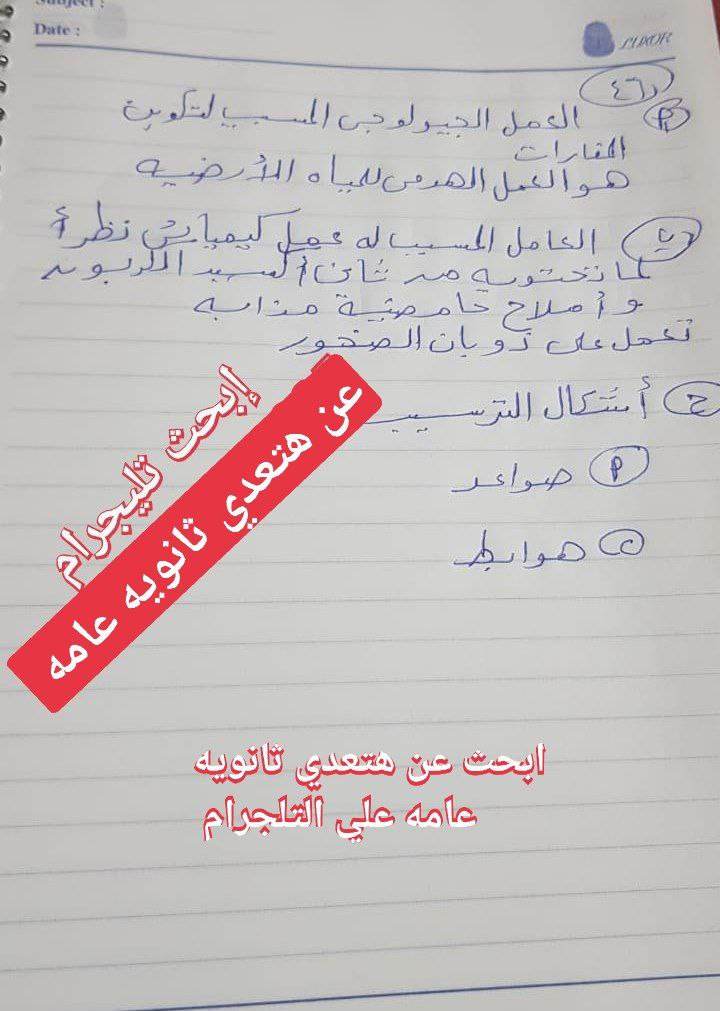 Subject :
Date :
LUXOR
٤٦د
أ العمل الجيولوجى المسبب لتكوين
المغارات
هو العمل الهدمى للمياه الأرضيه
ب العامل المسبب له عمل كيميائى نظراً
لما تحتويه من ثانى أكسيد الكربون
و أملاح حامضية مذابه
تعمل على ذوبان الصخور
ج أشكال الترسيب
أ صواعد
ب هوابط
إبحث تليجرام
عن هتعدي ثانويه عامه
ابحث عن هتعدي ثانويه
عامه علي التلجرام